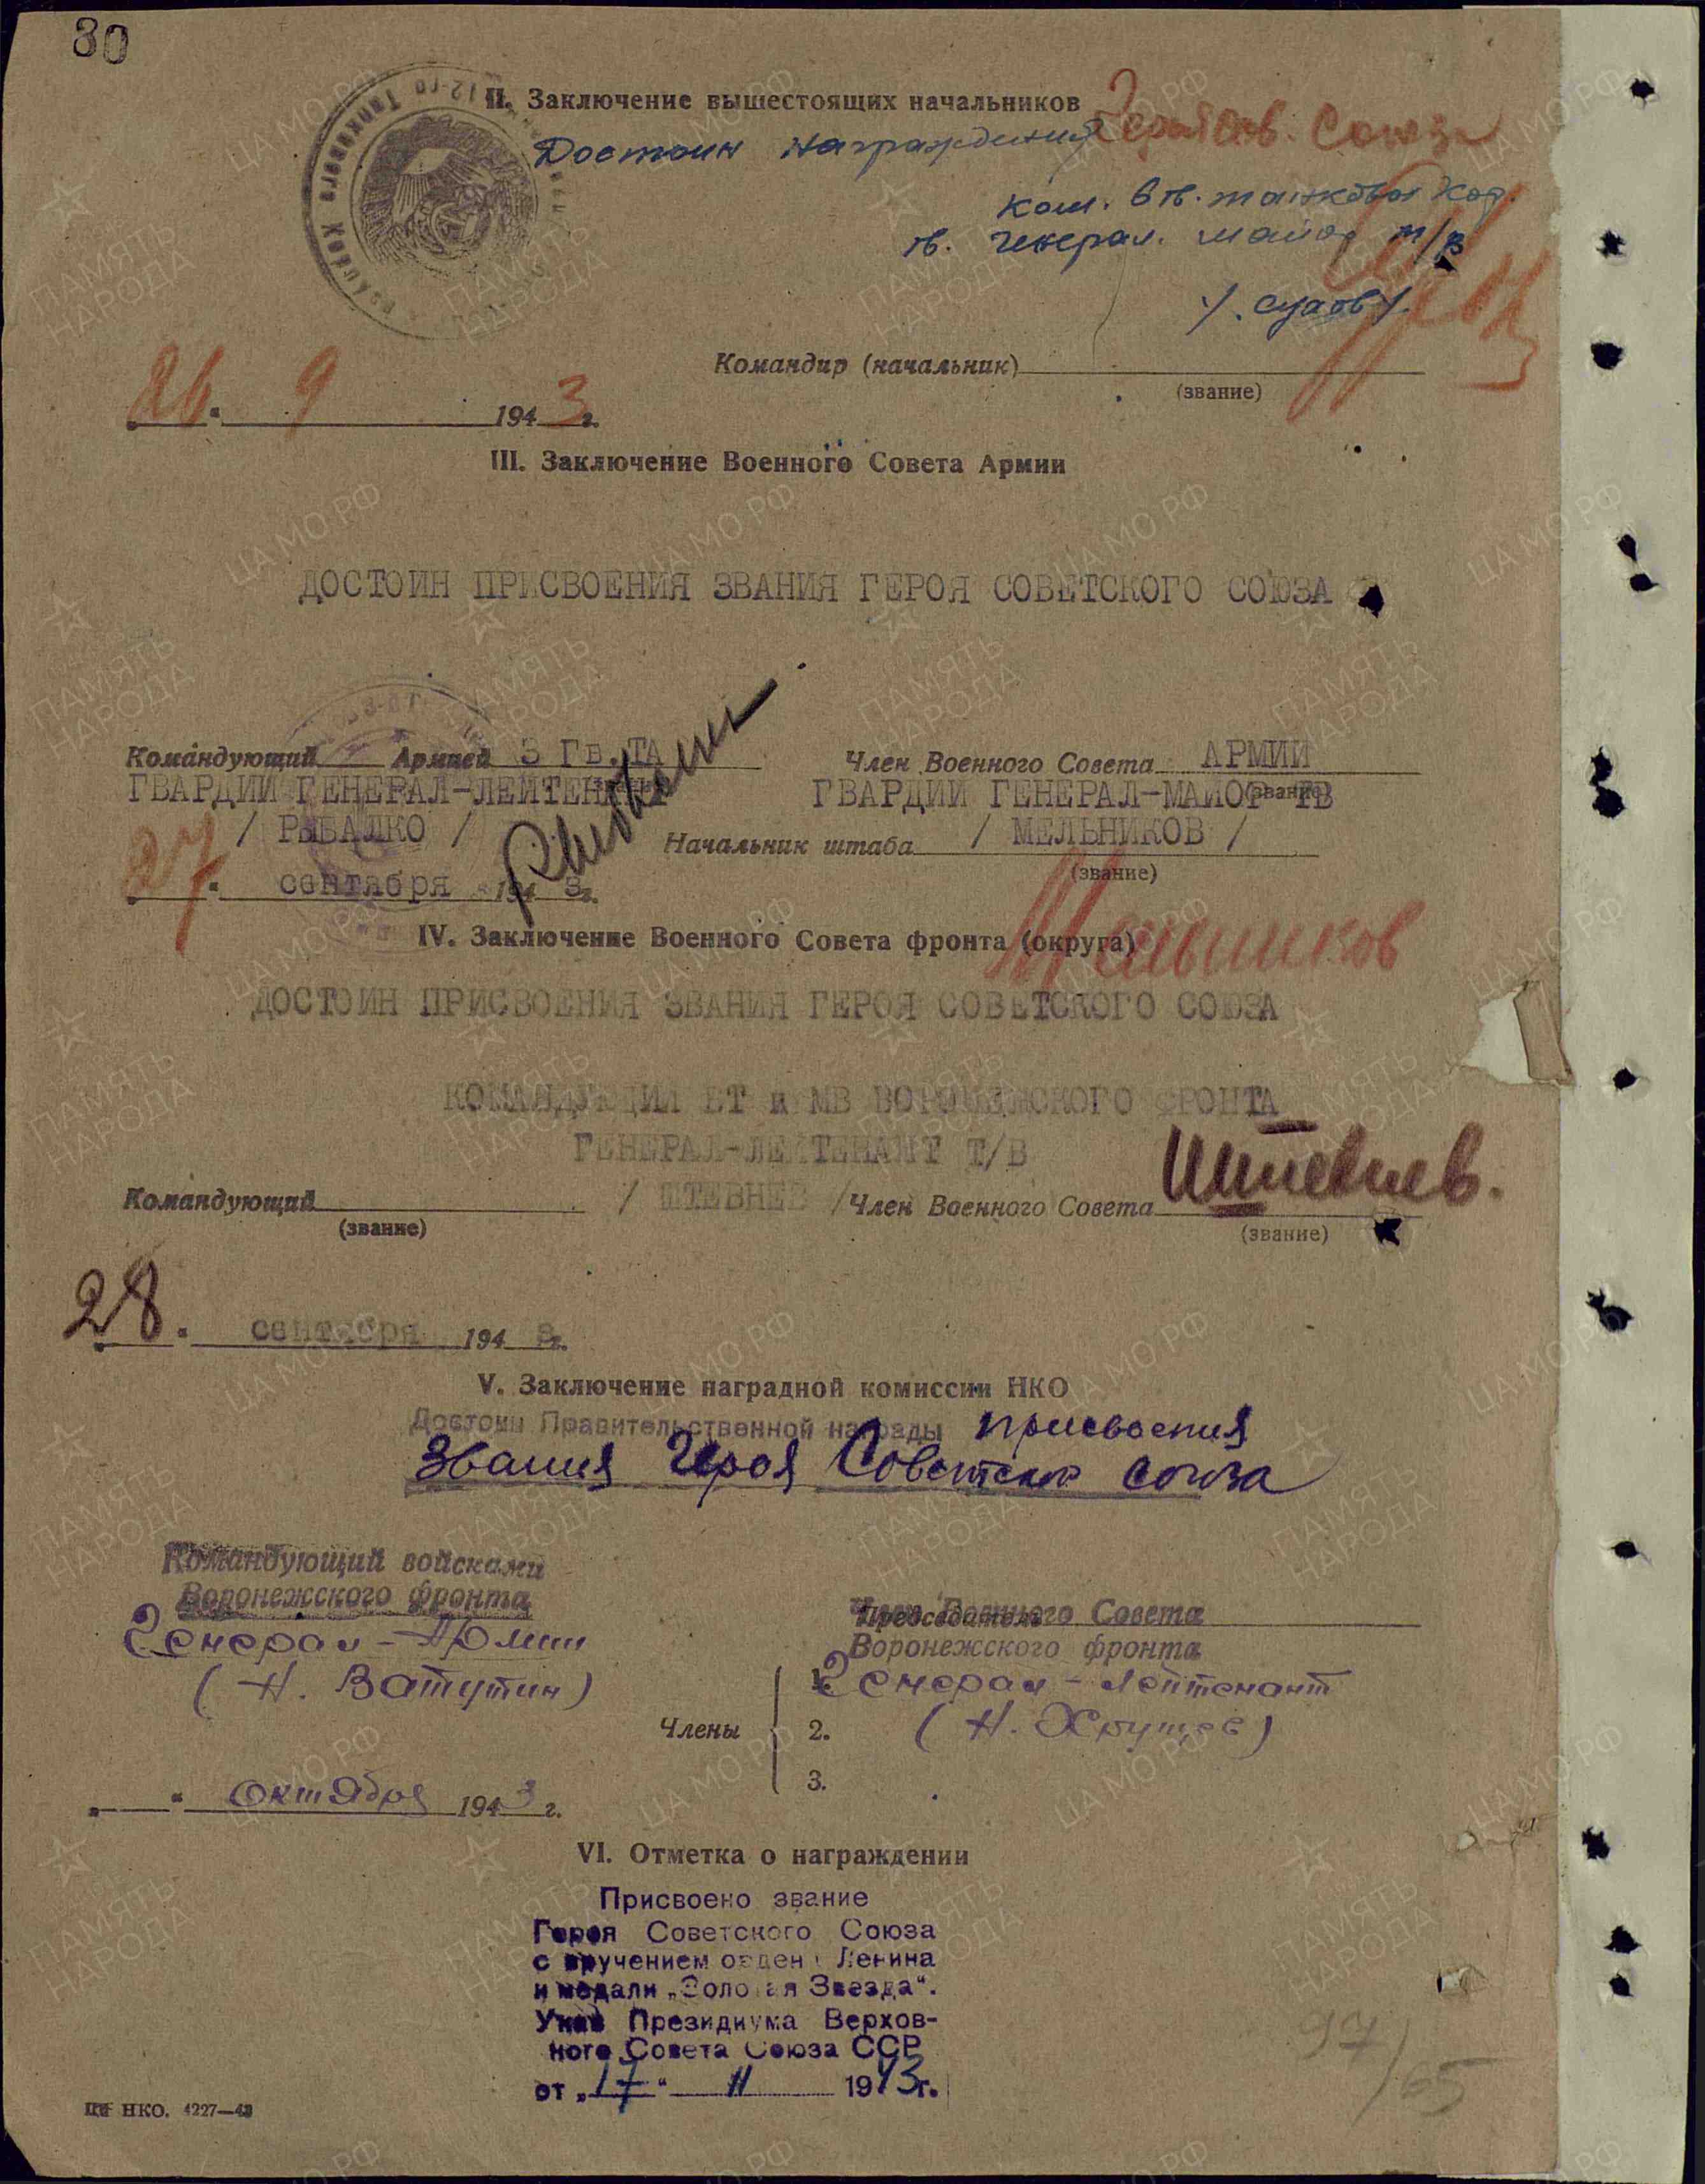 80
II. Заключение вышестоящих начальников
Достоин награждения Героя Сов. Союза
Ком. 6 гв. танковым кор.
гв. генерал. майор т/в
Командир (начальник)
(звание)
26 " 9 1943 г.
III. Заключение Военного Совета Армии
ДОСТОИН ПРИСВОЕНИЯ ЗВАНИЯ ГЕРОЯ СОВЕТСКОГО СОЮЗА
Командующий Армией 3 Гв.ТА
ГВАРДИИ ГЕНЕРАЛ-ЛЕЙТЕНАНТ
/ РЫБАЛКО /
"27" сентября 1943 г.
Член Военного Совета АРМИИ
ГВАРДИИ ГЕНЕРАЛ-МАЙОР ТВ
(звание)
Начальник штаба / МЕЛЬНИКОВ /
(звание)
Мельников
IV. Заключение Военного Совета фронта (округа)
ДОСТОИН ПРИСВОЕНИЯ ЗВАНИЯ ГЕРОЯ СОВЕТСКОГО СОЮЗА
КОМАНДУЮЩИЙ БТ и МВ ВОРОНЕЖСКОГО ФРОНТА
ГЕНЕРАЛ-ЛЕЙТЕНАНТ Т/В
/ ШТЕВНЕВ /
Штевнев.
Командующий
(звание)
Член Военного Совета
(звание)
"28" сентября 1943 г.
V. Заключение наградной комиссии НКО
Достоин Правительственной награды присвоения
звания Героя Советского Союза
Командующий войсками
Воронежского фронта
Генерал-Армии
(Н. Ватутин)
Председатель
Член Военного Совета
Воронежского фронта
Генерал-лейтенант
(Н. Хрущев)
Члены
1.
2.
3.
"—" октября 1943 г.
VI. Отметка о награждении
Присвоено звание
Героя Советского Союза
с вручением ордена Ленина
и медали „Золотая Звезда".
Указ Президиума Верхов-
ного Совета Союза ССР
от „17" 11 1943г.
97/65
НКО. 4227—43
ПАМЯТЬ НАРОДА
ЦА МО РФ